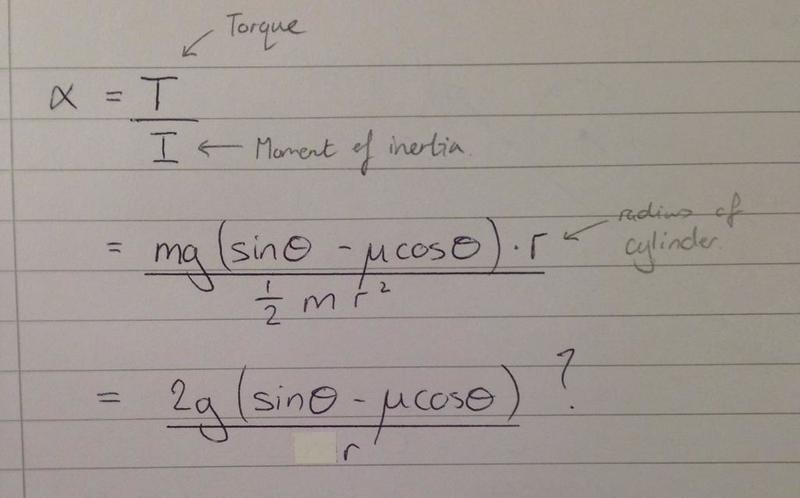 Torque
α = T / I ← Moment of inertia.
= mg (sinθ - μcosθ) · r / ½ m r²
radius of
cylinder.
= 2g (sinθ - μcosθ) / r ?